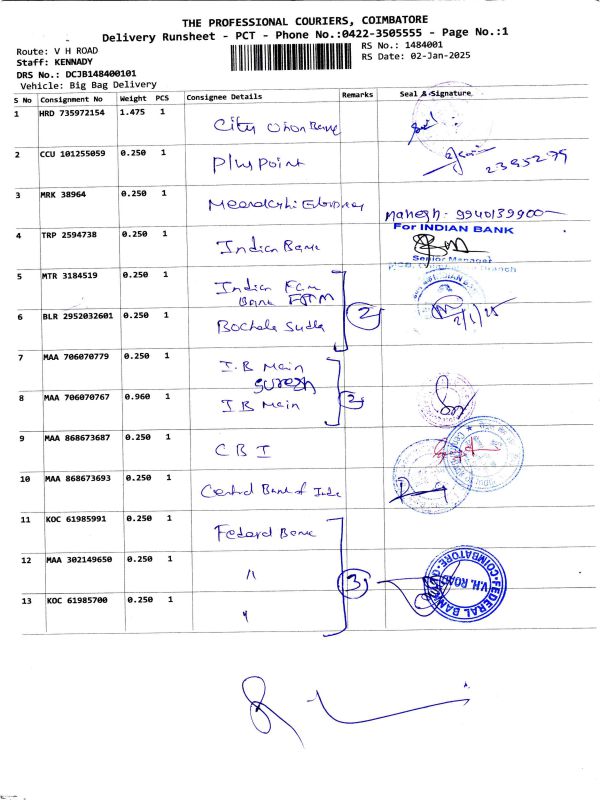 THE PROFESSIONAL COURIERS, COIMBATORE
Delivery Runsheet - PCT - Phone No.:0422-3505555 - Page No.:1
Route: V H ROAD
RS No.: 1484001
Staff: KENNADY
RS Date: 02-Jan-2025
DRS No.: DCJB148400101
Vehicle: Big Bag Delivery
S No Consignment No Weight PCS Consignee Details Remarks Seal & Signature
1 HRD 735972154 1.475 1 City Union Bank
2 CCU 101255059 0.250 1 Plus Point 2395279
3 MRK 38964 0.250 1 Mahesh: 9940139900
4 TRP 2594738 0.250 1 Indian Bank
For INDIAN BANK
Senior Manager
5 MTR 3184519 0.250 1 Indian
Bank
6 BLR 2952032601 0.250 1 2 2/1/25
7 MAA 706070779 0.250 1 I.B Main
Suresh
8 MAA 706070767 0.960 1 I B Main 2
9 MAA 868673687 0.250 1 C B I
10 MAA 868673693 0.250 1 Central Bank of India
11 KOC 61985991 0.250 1 Federal Bank
12 MAA 302149650 0.250 1 " 3
FEDERAL BANK COIMBATORE V.H. ROAD
13 KOC 61985700 0.250 1 "